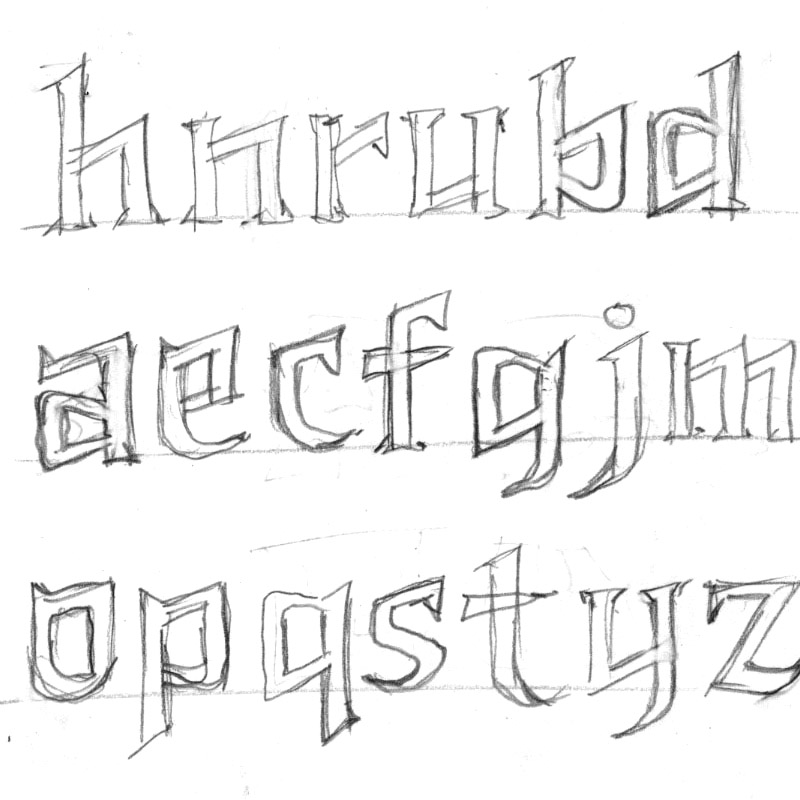 hnrubd
aecfgjm
opqstyz